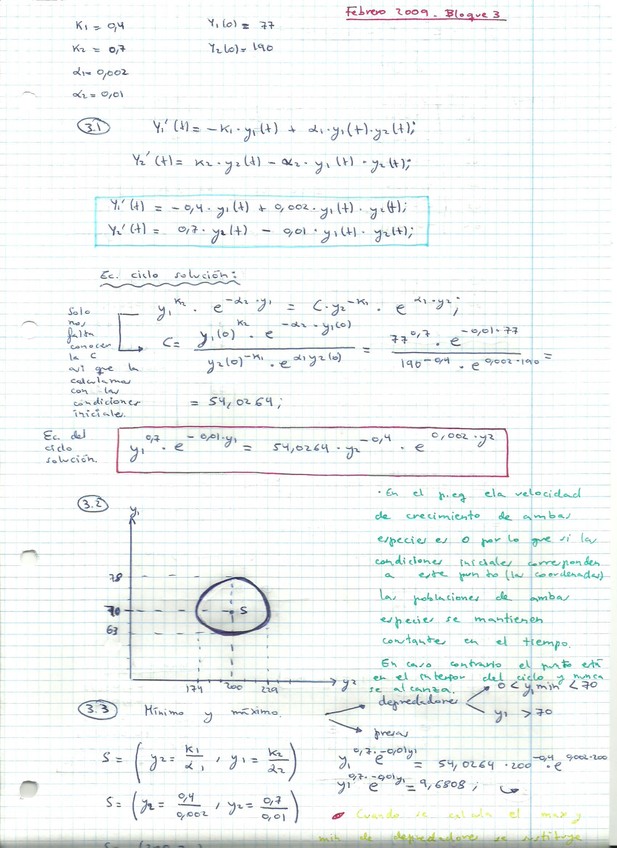 Febrero 2009. Bloque 3
K₁ = 0,4 Y₁(0) = 77
K₂ = 0,7 Y₂(0) = 190
α₁ = 0,002
α₂ = 0,01
3.1 Y₁'(t) = -K₁·y₁(t) + α₁·y₁(t)·y₂(t);
Y₂'(t) = K₂·y₂(t) - α₂·y₁(t)·y₂(t);
Y₁'(t) = -0,4·y₁(t) + 0,002·y₁(t)·y₂(t);
Y₂'(t) = 0,7·y₂(t) - 0,01·y₁(t)·y₂(t);
Ec. ciclo solución:
y₁^K₂ · e^(-α₂·y₁) = C·y₂^(-K₁) · e^(α₁·y₂);
Solo
nos
falta
conocer
la C
así que la
calculamos
con las
condiciones
iniciales.
C = (y₁(0)^K₂ · e^(-α₂·y₁(0))) / (y₂(0)^(-K₁) · e^(α₁y₂(0))) = (77^0,7 · e^(-0,01·77)) / (190^(-0,4) · e^(0,002·190)) =
= 54,0264;
Ec. del
ciclo
solución.
y₁^0,7 · e^(-0,01·y₁) = 54,0264·y₂^(-0,4) · e^(0,002·y₂)
3.2
y₁
78
70
63
S
174 200 229 y₂
· En el p.eq e la velocidad
de crecimiento de ambas
especies es 0 por lo que si la
condiciones iniciales corresponden
a este punto (las coordenadas)
las poblaciones de ambas
especies se mantienen
constantes en el tiempo.
En caso contrario el punto está
en el interior del ciclo y nunca
se alcanza.
3.3 Mínimo y máximo.
depredadores
0 < y₁ min < 70
y₁ > 70
presas
S = (y₂ = K₁/α₁, y₁ = K₂/α₂)
S = (y₂ = 0,4/0,002, y₂ = 0,7/0,01)
y₁^0,7 · e^(-0,01y₁) = 54,0264·200^(-0,4) · e^(0,002·200)
y₁^0,7 · e^(-0,01y₁) = 9,6808;
Cuando se calcula el max y
min de depredadores se sustituye